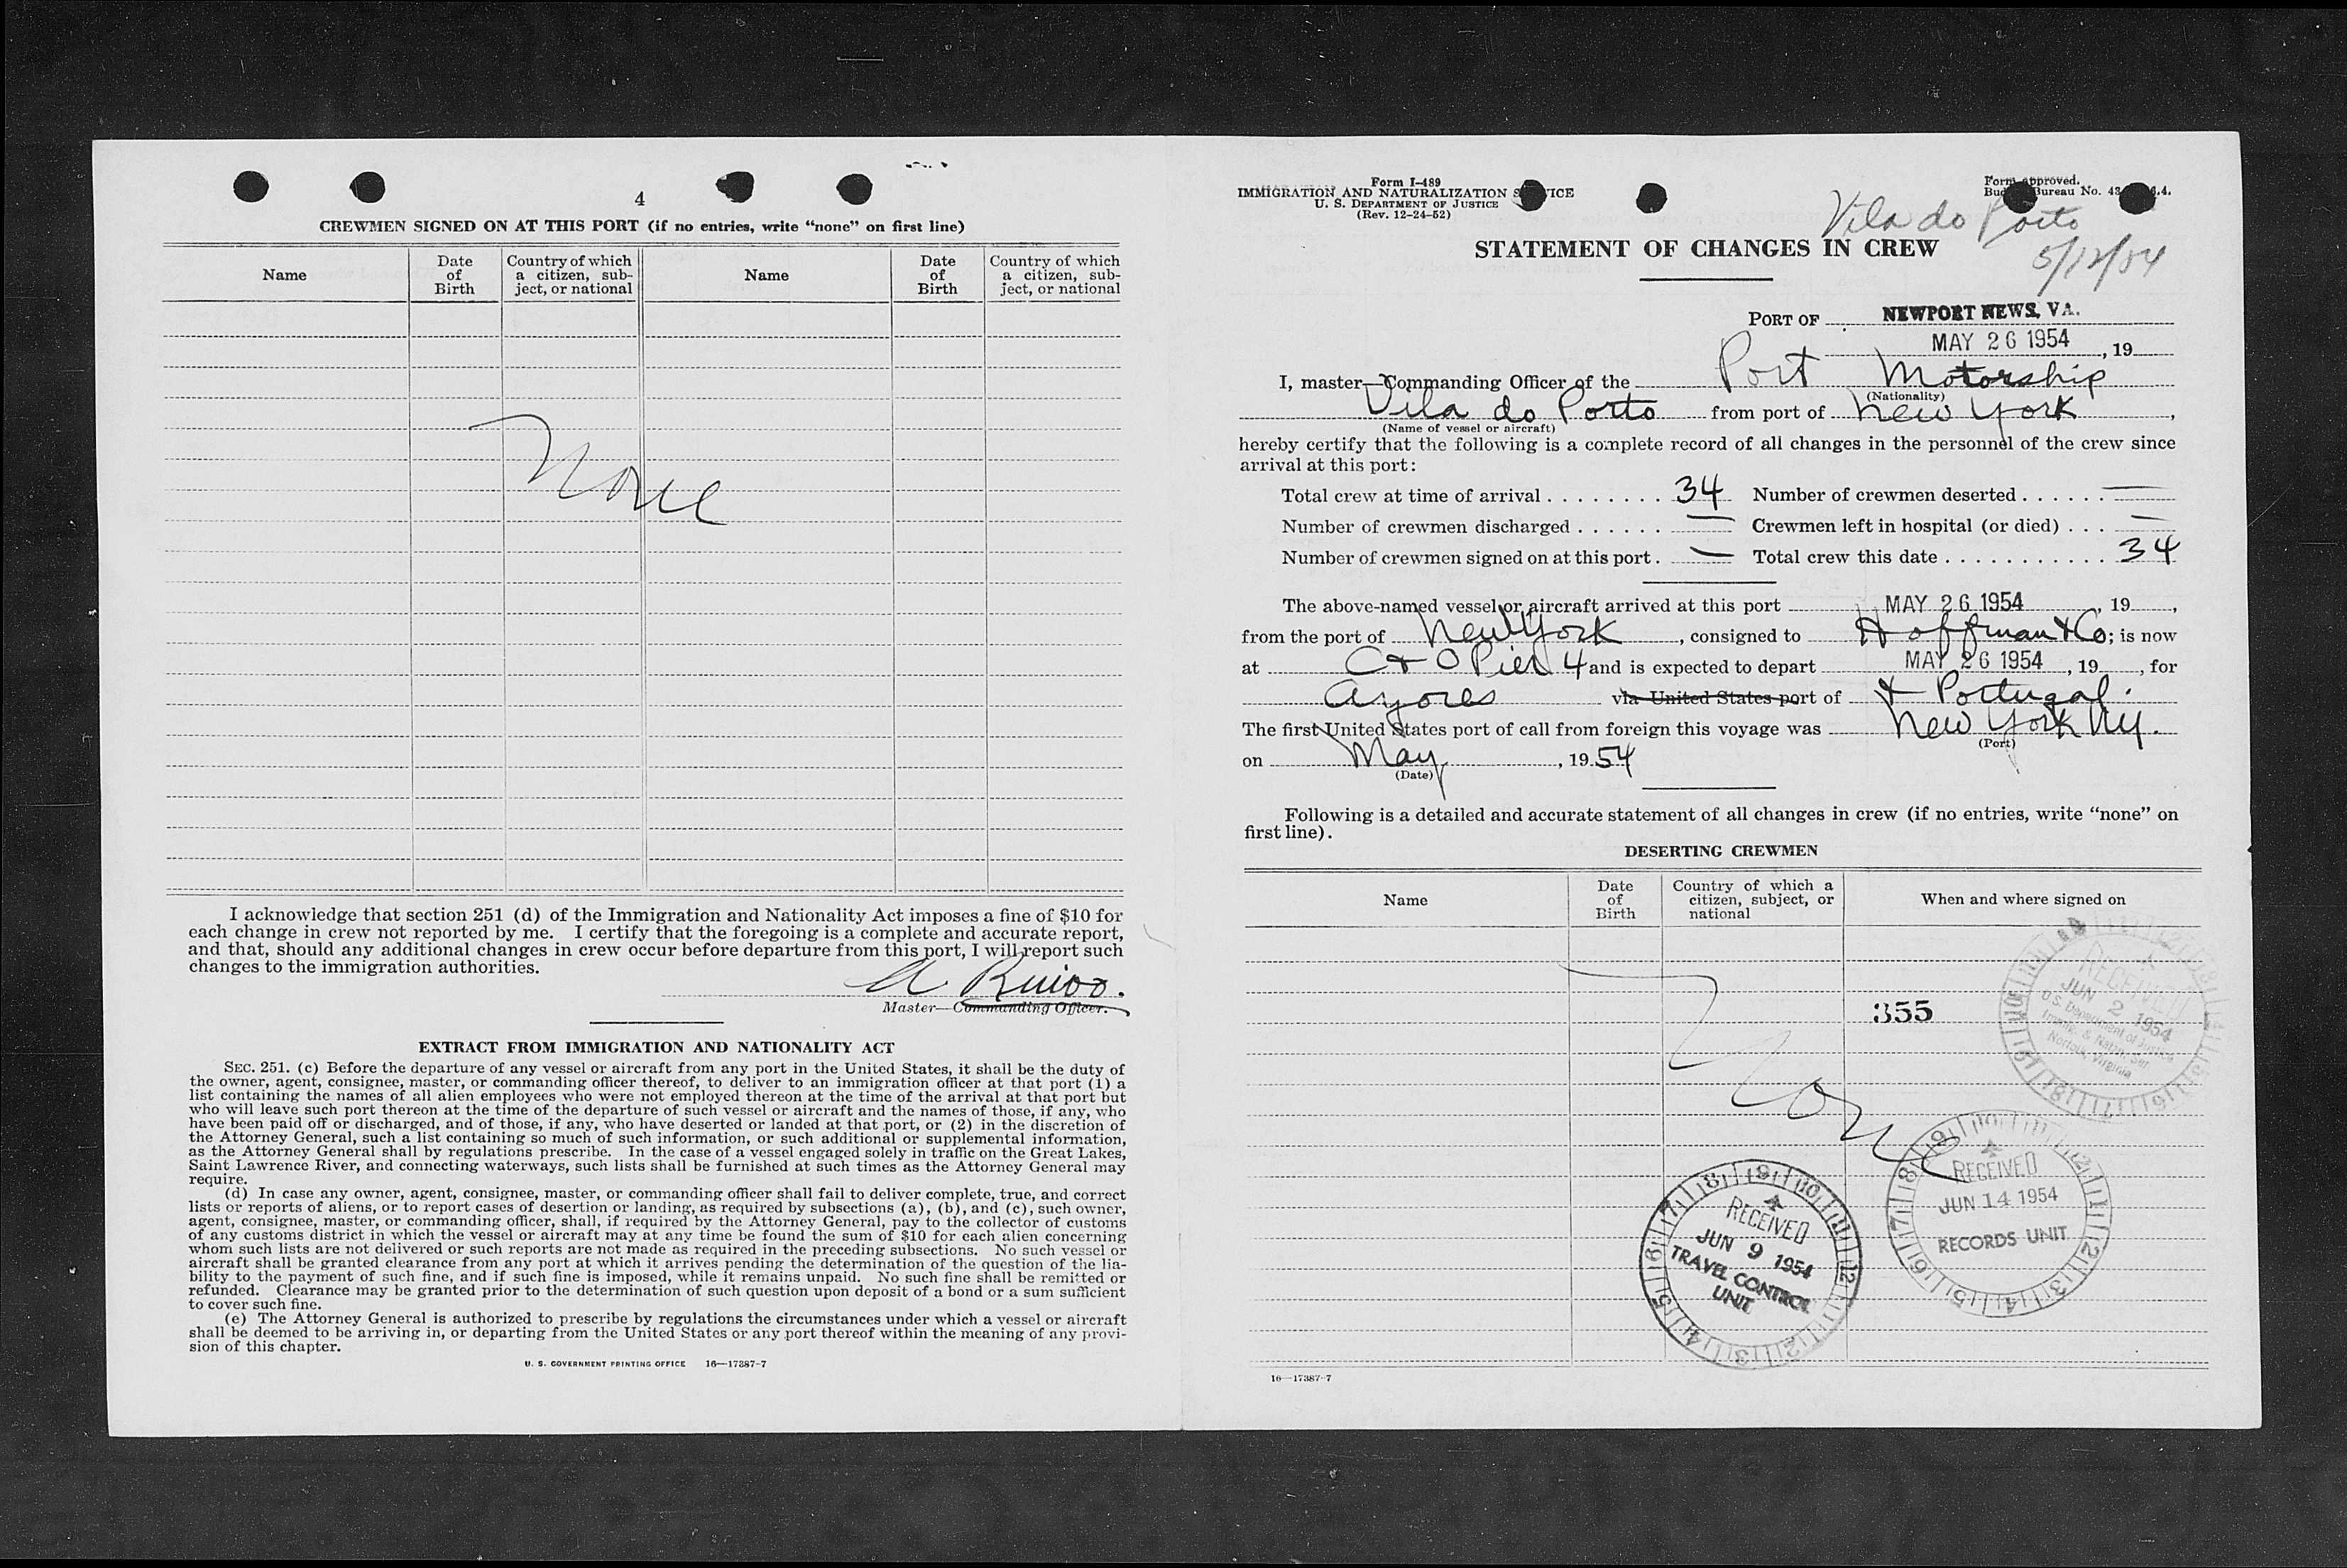 4
CREWMEN SIGNED ON AT THIS PORT (if no entries, write “none” on first line)
Name
Date of Birth
Country of which a citizen, sub-ject, or national
Name
Date of Birth
Country of which a citizen, sub-ject, or national
None
I acknowledge that section 251 (d) of the Immigration and Nationality Act imposes a fine of $10 for
each change in crew not reported by me. I certify that the foregoing is a complete and accurate report,
and that, should any additional changes in crew occur before departure from this port, I will report such
changes to the immigration authorities.
A
Master—Commanding Officer.
EXTRACT FROM IMMIGRATION AND NATIONALITY ACT
SEC. 251. (c) Before the departure of any vessel or aircraft from any port in the United States, it shall be the duty of
the owner, agent, consignee, master, or commanding officer thereof, to deliver to an immigration officer at that port (1) a
list containing the names of all alien employees who were not employed thereon at the time of the arrival at that port but
who will leave such port thereon at the time of the departure of such vessel or aircraft and the names of those, if any, who
have been paid off or discharged, and of those, if any, who have deserted or landed at that port, or (2) in the discretion of
the Attorney General, such a list containing so much of such information, or such additional or supplemental information,
as the Attorney General shall by regulations prescribe. In the case of a vessel engaged solely in traffic on the Great Lakes,
Saint Lawrence River, and connecting waterways, such lists shall be furnished at such times as the Attorney General may
require.
(d) In case any owner, agent, consignee, master, or commanding officer shall fail to deliver complete, true, and correct
lists or reports of aliens, or to report cases of desertion or landing, as required by subsections (a), (b), and (c), such owner,
agent, consignee, master, or commanding officer, shall, if required by the Attorney General, pay to the collector of customs
of any customs district in which the vessel or aircraft may at any time be found the sum of $10 for each alien concerning
whom such lists are not delivered or such reports are not made as required in the preceding subsections. No such vessel or
aircraft shall be granted clearance from any port at which it arrives pending the determination of the question of the lia-
bility to the payment of such fine, and if such fine is imposed, while it remains unpaid. No such fine shall be remitted or
refunded. Clearance may be granted prior to the determination of such question upon deposit of a bond or a sum sufficient
to cover such fine.
(e) The Attorney General is authorized to prescribe by regulations the circumstances under which a vessel or aircraft
shall be deemed to be arriving in, or departing from the United States or any port thereof within the meaning of any provi-
sion of this chapter.
U. S. GOVERNMENT PRINTING OFFICE 16—17387-7
Form I-489
IMMIGRATION AND NATURALIZATION S VICE
U. S. DEPARTMENT OF JUSTICE
(Rev. 12-24-52)
Form approved.
Bureau No. 43
Vila do Porto
5/12/54
STATEMENT OF CHANGES IN CREW
PORT OF NEWPORT NEWS, VA.
MAY 26 1954, 19
I, master—Commanding Officer of the Port Motorship
(Nationality)
Vila do Porto from port of New York,
(Name of vessel or aircraft)
hereby certify that the following is a complete record of all changes in the personnel of the crew since
arrival at this port:
Total crew at time of arrival ........ 34 Number of crewmen deserted ...... —
Number of crewmen discharged ...... — Crewmen left in hospital (or died) ... —
Number of crewmen signed on at this port. — Total crew this date ........... 34
The above-named vessel or aircraft arrived at this port MAY 26 1954, 19,
from the port of New York, consigned to Hoffman & Co; is now
at C & O Pier 4 and is expected to depart MAY 26 1954, 19, for
Azores via United States port of & Portugal.
The first United States port of call from foreign this voyage was New York Ny.
(Port)
on May, 1954
(Date)
Following is a detailed and accurate statement of all changes in crew (if no entries, write “none” on
first line).
DESERTING CREWMEN
Name
Date of Birth
Country of which a citizen, subject, or national
When and where signed on
355
RECEIVED
JUN 2 1954
U.S. Department of Justice
Immig. & Natzn. Ser.
Norfolk, Virginia
RECEIVED
JUN 14 1954
RECORDS UNIT
RECEIVED
JUN 9 1954
TRAVEL CONTROL
UNIT
16—17387-7